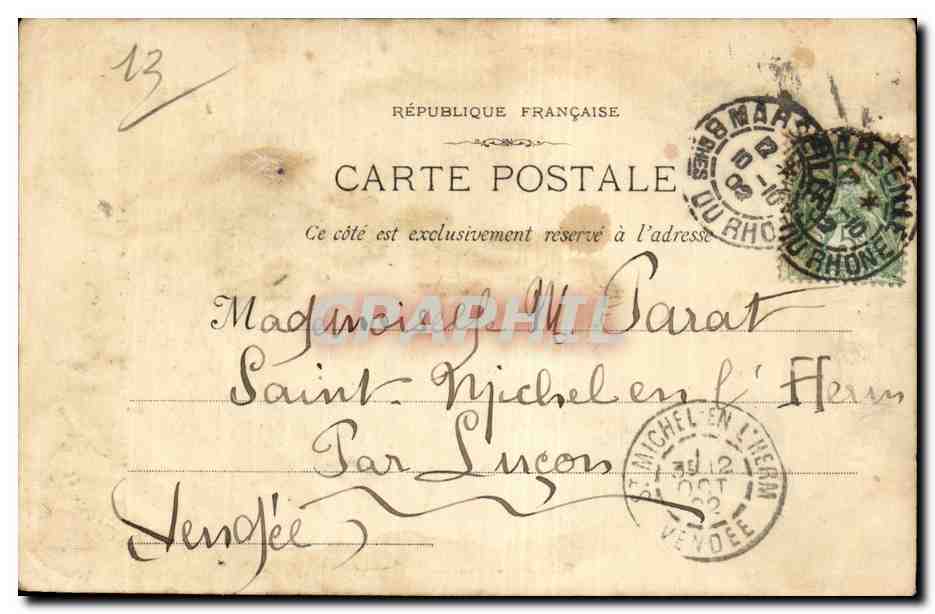 13
RÉPUBLIQUE FRANÇAISE
CARTE POSTALE
Ce côté est exclusivement réservé à l'adresse
Madmoiselle M. Parat
Saint-Michel en l'Herm
Par Luçon
Vendée
MARSEILLE
12
10 -10
02
BCHES DU RHONE
MARSEILLE
DU RHONE
ST MICHEL-EN-L'HERM
12
OCT
02
VENDÉE
CPAPHIL